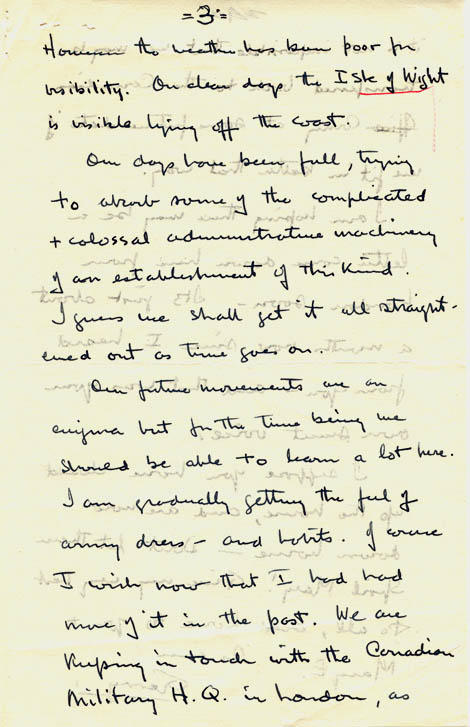 = 3 =
However the weather has been poor for
visibility. On clear days the Isle of Wight
is visible lying off the coast.
Our days have been full, trying
to absorb some of the complicated
+ colossal administrative machinery
of an establishment of this kind.
I guess we shall get it all straight-
ened out as time goes on.
Our future movements are an
enigma but for the time being we
should be able to learn a lot here.
I am gradually getting the feel of
army dress - and habits. Of course
I wish now that I had had
more of it in the past. We are
keeping in touch with the Canadian
Military H.Q. in London, as